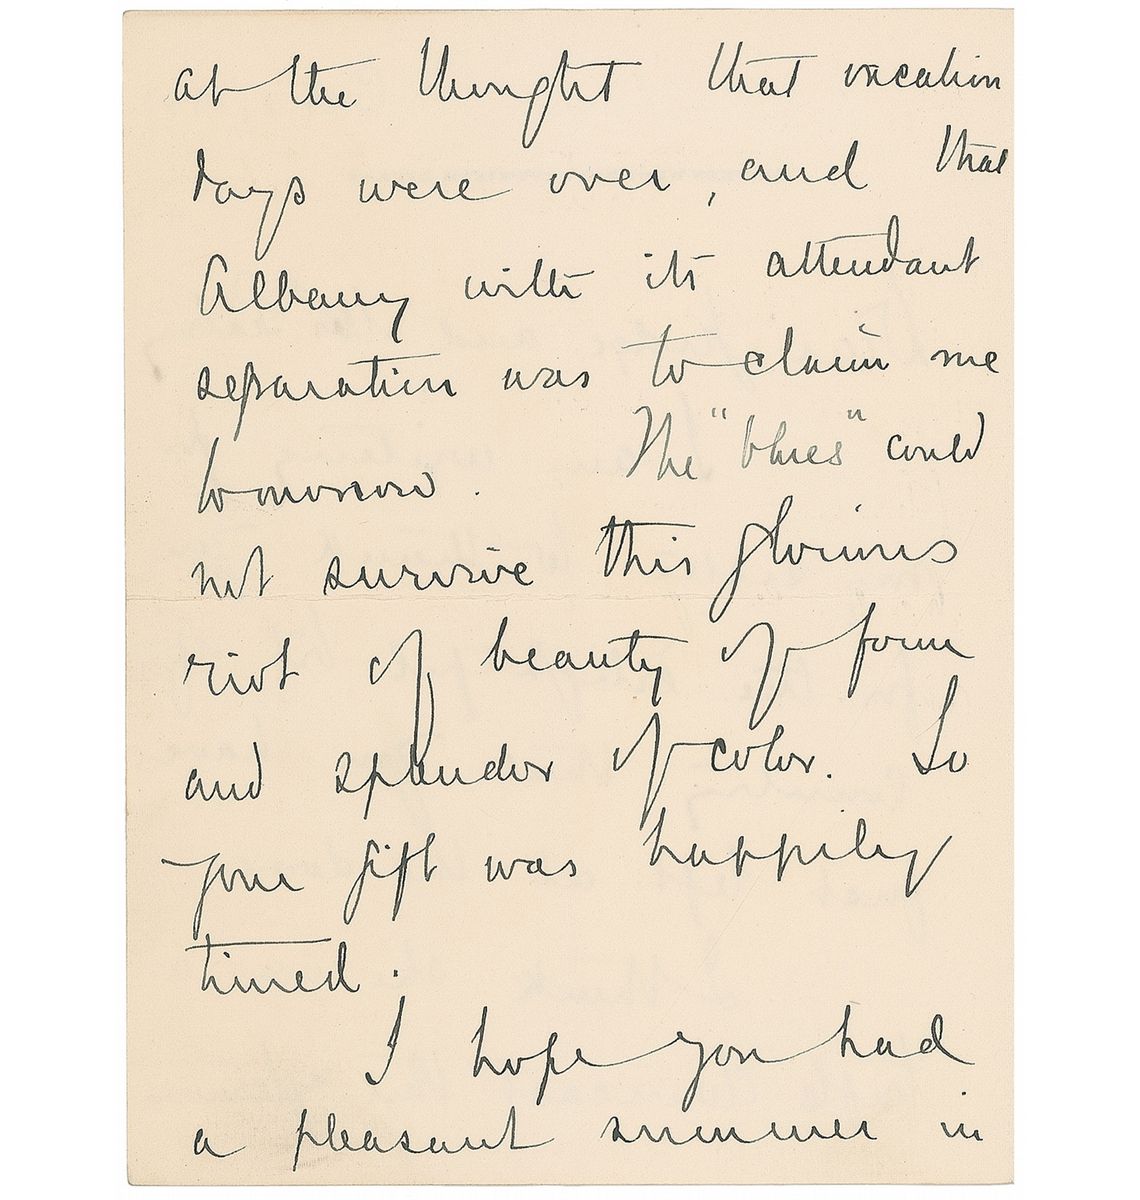 at the thought that vacation
days were over, and that
Albany with its attendant
separation was to claim me
tomorrow. The "blues" could
not survive this glorious
riot of beauty of form
and splendor of color. So
your gift was happily
timed.
I hope you had
a pleasant summer in